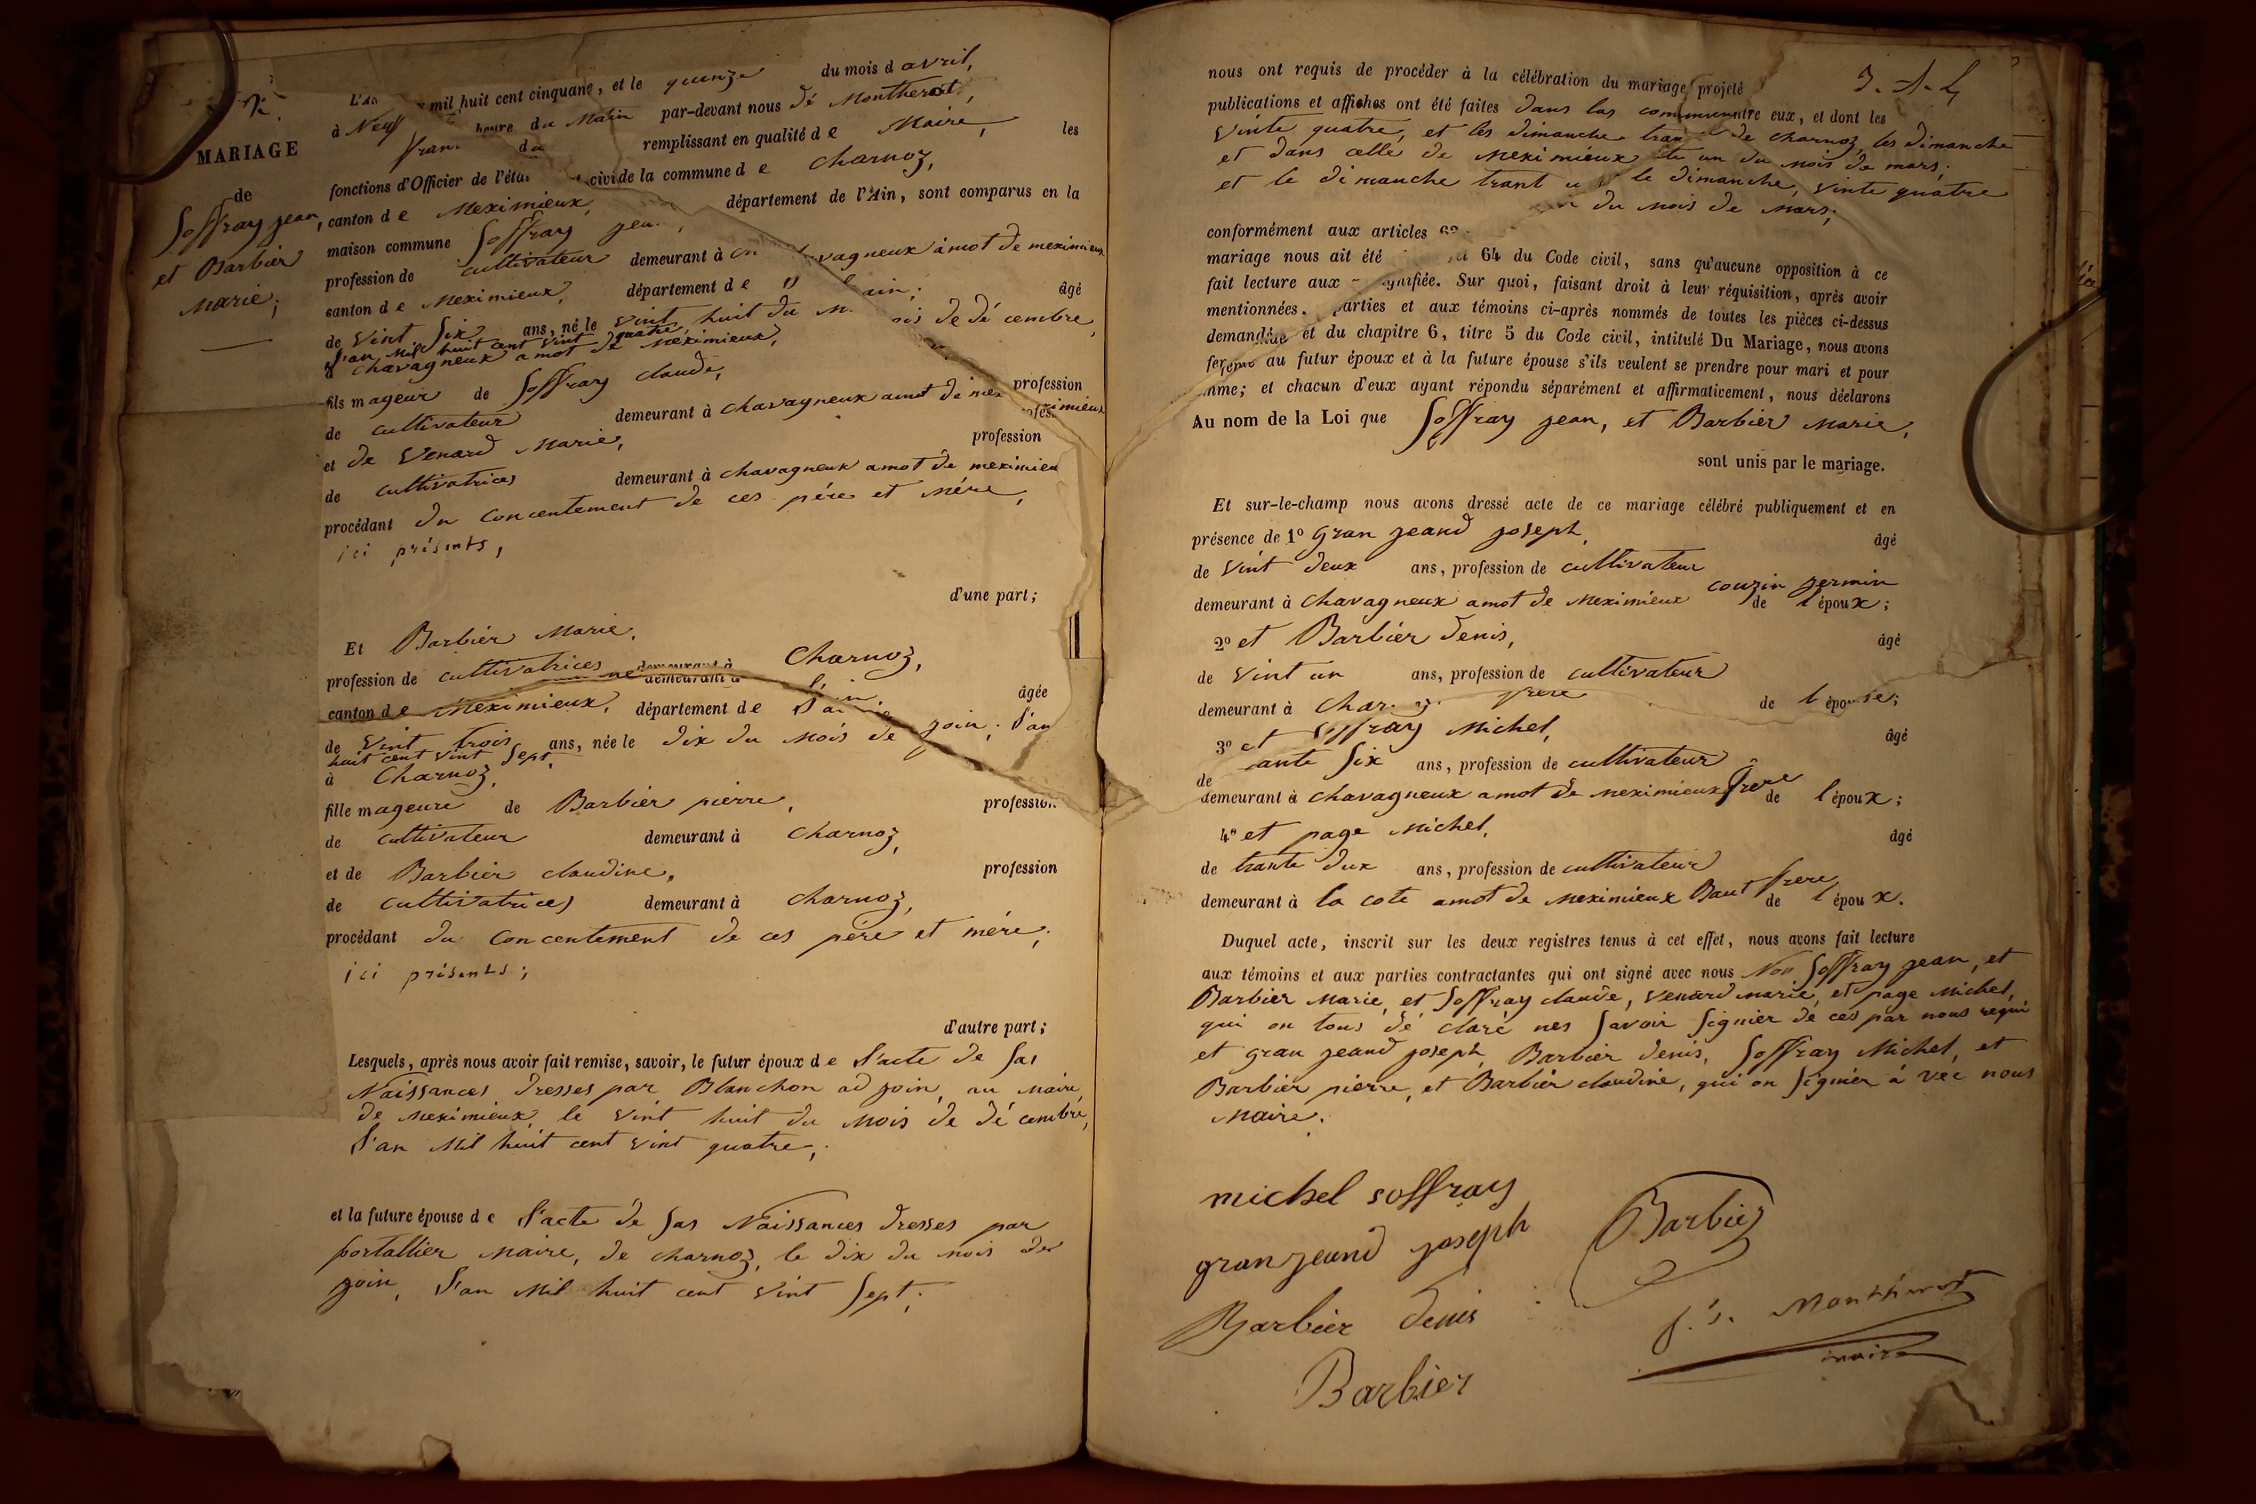 MARIAGE
de
Soffray jean,
et Barbier
Marie;
mil huit cent cinquane, et le quinze du mois d avril,
à Neuf heure du Matin par-devant nous dé Montherot,
du remplissant en qualité d e Maire, les
fonctions d'Officier de l'état civide la commune d e Charnoz,
canton d e Meximieux, département de l'Ain, sont comparus en la
maison commune Soffray jean,
profession de cultivateur demeurant à chavagneux amot de meximieux
canton d e Meximieux, département d e l'ain; âgé
de vint Six ans, né le vint huit du Mois de dé cembre,
l'an Mil huit cent vint quatre
à chavagneux amot de Meximieux,
fils mageur de Soffray claude, profession
de cultivateur demeurant à chavagneux amot de meximieux
et de Venard Marie, profession
de cultivatrices demeurant à chavagneux amot de meximieu
procédant du concentement de ces pére et Mére,
ici présents,
d'une part;
Et Barbiér Marie,
profession de cultivatrices demeurant à Charnoz,
canton d e Meximieux, département d e l'ain âgée
de vint trois ans, née le dix du Mois de join, l'an
huit cent vint Sept,
à Charnoz,
fille mageure de Barbiér pierre, profession
de cultivateur demeurant à Charnoz,
et de Barbier claudine, profession
de cultivatrices demeurant à Charnoz,
procédant du concentement de ces pére et mére,
ici présents;
d'autre part;
Lesquels, après nous avoir fait remise, savoir, le futur époux d e l'acte de Sas
Naissances dresses par Blanchon ad join, au Maire
de Meximieux, le vint huit du Mois de dé cembre,
l'an Mil huit cent vint quatre,
et la future épouse d e l'acte dé Sas Naissances dresses par
portallier Maire, de charnoz, le dix du mois de
join, l'an Mil huit cent vint Sept;
nous ont requis de procéder à la célébration du mariage projeté
entre eux, et dont les
publications et affiches ont été faites dans las commun de charnoz, les dimanche
vinte quatre, et les dimanche trante un du Mois de mars;
et dans celle de Meximieux le dimanche, vinte quatre
et le dimanche trant un du Mois de Mars;
conformément aux articles 63 et 64 du Code civil, sans qu'aucune opposition à ce
mariage nous ait été signifiée. Sur quoi, faisant droit à leur réquisition, après avoir
fait lecture aux parties et aux témoins ci-après nommés de toutes les pièces ci-dessus
mentionnées, et du chapitre 6, titre 5 du Code civil, intitulé Du Mariage, nous avons
demandé au futur époux et à la future épouse s'ils veulent se prendre pour mari et pour
femme; et chacun d'eux ayant répondu séparément et affirmativement, nous déclarons
Au nom de la Loi que Soffray jean, et Barbiér Marie,
sont unis par le mariage.
Et sur-le-champ nous avons dressé acte de ce mariage célébré publiquement et en
présence de 1º gran jeand joseph, âgé
de vint deux ans, profession de cultivateur
demeurant à chavagneux amot de Meximieux couzin germin de l'époux;
2º et Barbiér denis, âgé
de vint un ans, profession de cultivateur
demeurant à Charnoz frere de l'épouse;
3º et Soffray Michel, âgé
de ante Six ans, profession de cultivateur
demeurant à chavagneux amot de Meximieux frere de l'époux;
4º et page Michel, âgé
de trante dux ans, profession de cultivateur
demeurant à la cote amot de Meximieux Baut frere de l'époux.
Duquel acte, inscrit sur les deux registres tenus à cet effet, nous avons fait lecture
aux témoins et aux parties contractantes qui ont signé avec nous Non Soffray jean, et
Barbiér Marie, et Soffray claude, venard marie, et page Michel,
qui on tous dé claré nes Savoir Signier de ces par nous requi
et gran jeand joseph, Barbiér denis, Soffray Michel, et
Barbiér pierre, et Barbiér claudine, qui on Signier á vec nous
Maire.
michel soffray
gran jeand joseph
Barbier
Barbier denis
Montherot
maire
Barbier